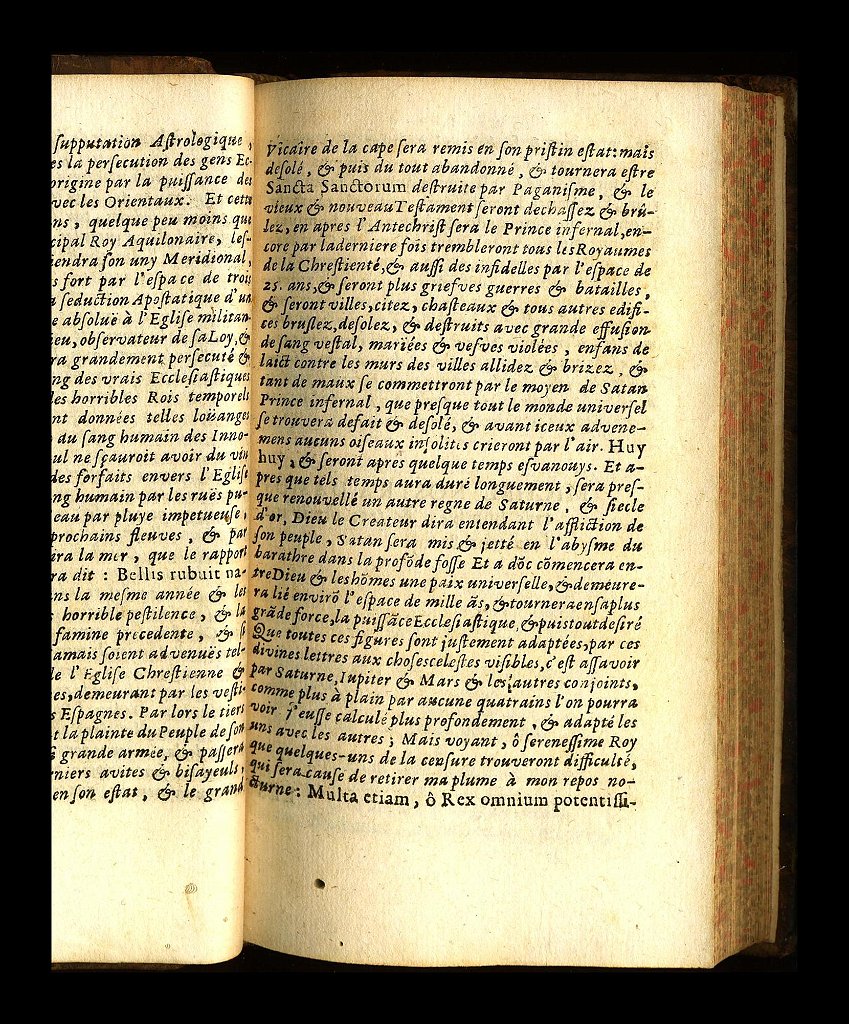 supputation Astrologique,
es la persecution des gens Ec-
origine par la puissance des
vec les Orientaux. Et cette
ns, quelque peu moins que
cipal Roy Aquilonaire, les-
iendra son uny Meridional,
s fort par l'espace de trois
a seduction Apostatique d'un
e absoluë à l'Eglise militan-
ieu, observateur de sa Loy, &
ra grandement persecuté &
ng des vrais Ecclesiastiques
des horribles Rois temporels
nt données telles loüanges
du sang humain des Inno-
ul ne sçauroit avoir du vin
des forfaits envers l'Eglise
ng humain par les ruës pu-
eau par pluye impetueuse,
prochains fleuves, & par
ira la mer, que le rapport
ra dit : Bellis rubuit na-
ns la mesme année & les
horrible pestilence, & la
famine precedente, & si
amais soient advenuës tel-
e l'Eglise Chrestienne &
es, demeurant par les vesti-
s Espagnes. Par lors le tiers
t la plainte du Peuple de son
s grande armée, & passera
niers avites & bisayeuls,
en son estat, & le grand
Vicaire de la cape sera remis en son pristin estat: mais
desolé, & puis du tout abandonné, & tournera estre
Sancta Sanctorum destruite par Paganisme, & le
vieux & nouveau Testament seront dechassez & brû-
lez, en apres l'Antechrist sera le Prince infernal, en-
core par la derniere fois trembleront tous les Royaumes
de la Chrestienté, & aussi des infidelles par l'espace de
25. ans, & seront plus griefves guerres & batailles,
& seront villes, citez, chasteaux & tous autres edifi-
ces bruslez, desolez, & destruits avec grande effusion
de sang vestal, mariées & vefves violées, enfans de
laict contre les murs des villes allidez & brizez, &
tant de maux se commettront par le moyen de Satan
Prince infernal, que presque tout le monde universel
se trouvera defait & desolé, & avant iceux advene-
mens aucuns oiseaux insolites crieront par l'air. Huy
huy, & seront apres quelque temps esvanouys. Et a-
pres que tels temps aura duré longuement, sera pres-
que renouvellé un autre regne de Saturne, & siecle
d'or, Dieu le Createur dira entendant l'affliction de
son peuple, Satan sera mis & jetté en l'abysme du
barathre dans la profõde fosse Et a dõc cõmencera en-
tre Dieu & les hõmes une paix universelle, & demeure-
ra lié envirõ l'espace de mille ãs, & tournera en sa plus
grãde force, la puissãce Ecclesiastique, & puis tout desiré
Que toutes ces figures sont justement adaptées, par ces
divines lettres aux choses celestes visibles, c'est assavoir
par Saturne, Iupiter & Mars & les autres conjoints,
comme plus à plain par aucune quatrains l'on pourra
voir j'eusse calculé plus profondement, & adapté les
uns avec les autres; Mais voyant, ô serenessime Roy
que quelques-uns de la censure trouveront difficulté,
qui sera cause de retirer ma plume à mon repos no-
cturne: Multa etiam, ô Rex omnium potentissi-